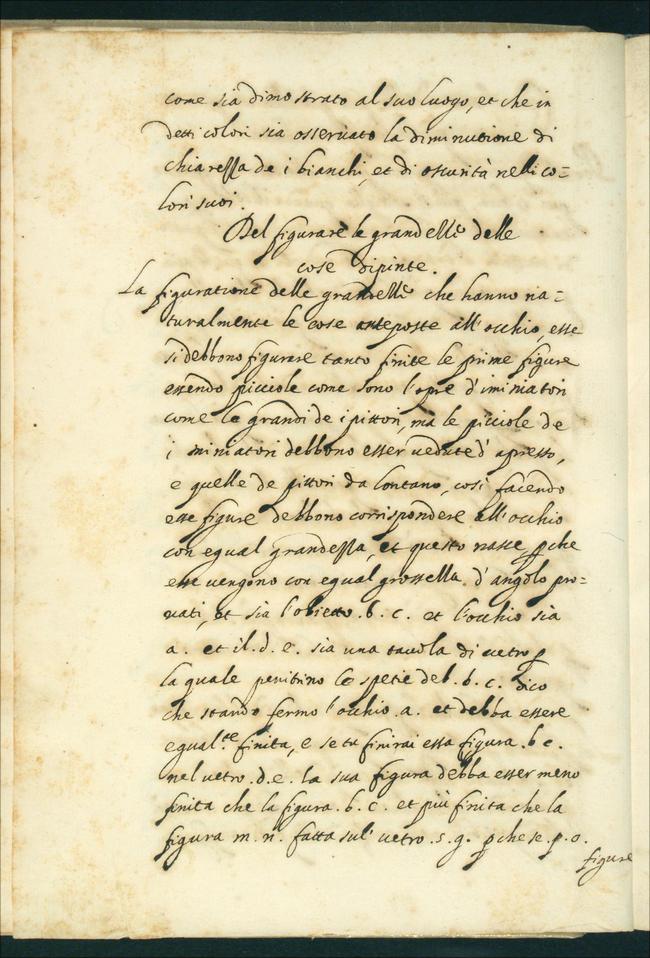 come sia dimostrato al suo luogo, et che in
detti colori sia osseruato la diminutione di
chiarezza de i bianchi, et di oscurità nelli co=
lori suoi.
Del figurare le grandezze delle
cose dipinte.
La figuratione delle grandezze che hanno na=
turalmente le cose anteposte all'occhio, esse
si debbono figurare tanto finite le prime figure
essendo picciole come sono l'opre d'iminiatori
come le grandi de i pittori, ma le picciole de
i miniatori debbono esser uedute d'apresso,
e quelle de pittori da lontano, cosi facendo
esse figure debbono corrispondere all'occhio
con egual grandezza, et questo nasce, p che
esse uengono con egual grossezza d'angolo pro=
uati, et sia l'obietto .b. c. et l'occhio sia
a. et il .d. e. sia una tauola di uetro p
la quale penitino le spetie del .b. c. dico
che stando fermo l'occhio .a. et debba essere
egual.te finita, e se tu finirai essa figura .b c.
nel uetro .d. e. la sua figura debba esser meno
finita che la figura .b. c. et più finita che la
figura m. n. fatta sul' uetro .s. g. p che se .p. o.
figure